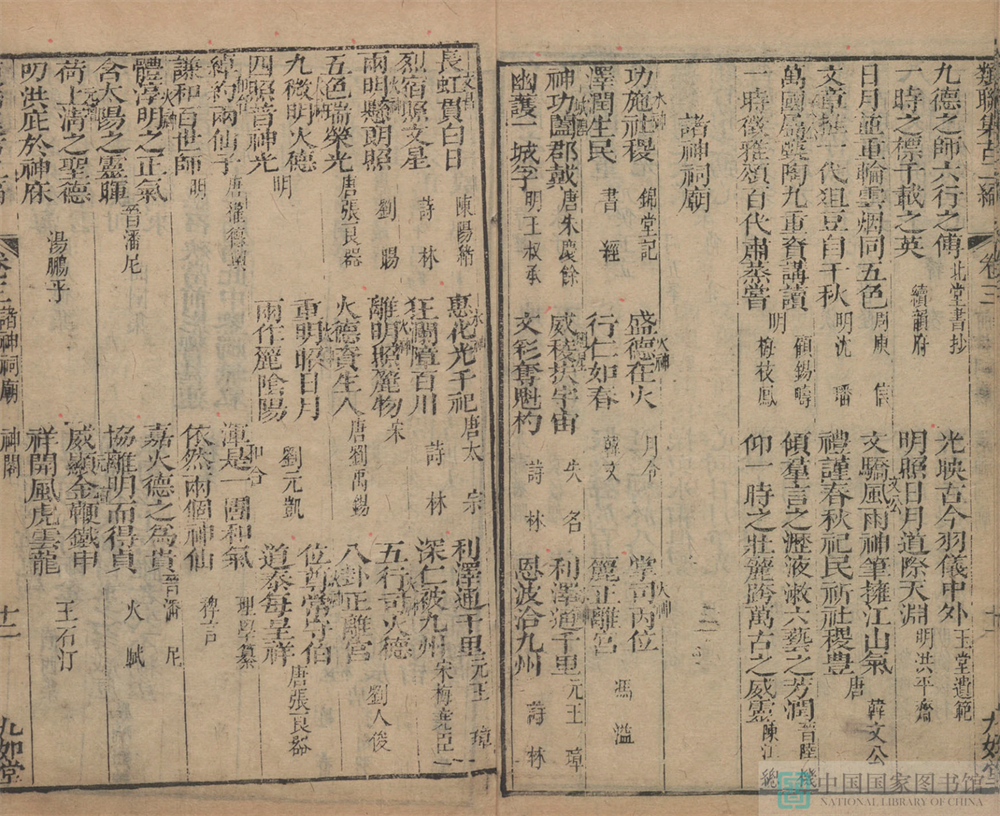 九德之師六行之傳 北堂書抄 光映古今羽儀中外 玉堂遺範
一時之標千載之英 續韻府 明照日月道際天淵 明洪平齋
日月並重輪雲烟同五色 周庾信 文驕風雨神筆擁江山氣 唐韓文公
文章 代狙豆自千秋 明沈 禮謹春秋祀民祈社稷豊
萬國 陶九重資講讀 顧錫疇 傾羣言之瀝液漱六藝之芳潤 晉陸機
一時徵雅頌百代肅蒸嘗 明梅枝鳳 仰一時之壯麗跨萬古之威靈 陳江總
諸神祠廟
功施社稷 錦堂記 盛德在火 月令 掌司丙位
澤潤生民 書經 行仁如春 韓文 麗正離宮 馮溢
神功闔郡戴 唐朱慶餘 威稜扶宇宙 失名 利澤通千里 元王璋
幽護一城 明王叔承 文彩奪魁杓 詩林 恩波洽九州 詩林
長虹貫白日 陳陽縉 惠化光千祀 唐太宗 利澤通千里 元王璋
烈宿照文星 詩林 狂瀾障百川 詩林 深仁被九州 宋梅堯臣
兩明懸朗照 劉賜 離明照麗物 宋 五行司火德 劉人俊
五色瑞榮光 唐張良器 火德資生人 唐劉禹錫 八卦正離宮
九 明火德 明 重明昭日月 劉元凱 位尊常守伯
四照昔神光 兩作麗陰陽 道泰每呈祥 唐張良器
綽約兩仙子 唐灌德 渾是一團和氣 理學纂
謙和百世師 明 依然兩個神仙 稗言
體淳明之正氣 嘉火德之為貴 晉潘尼
含太陽之靈暉 晉潘尼 協離明而得貞 火賦
荷上清之聖德 威顯金鞭鐵甲 王石汀
叨洪庇於神庥 湯鵬乎 祥開風虎雲龍
卷三 諸神祠廟 神閣 十二 九如堂
中国国家图书馆
NATIONAL LIBRARY OF CHINA